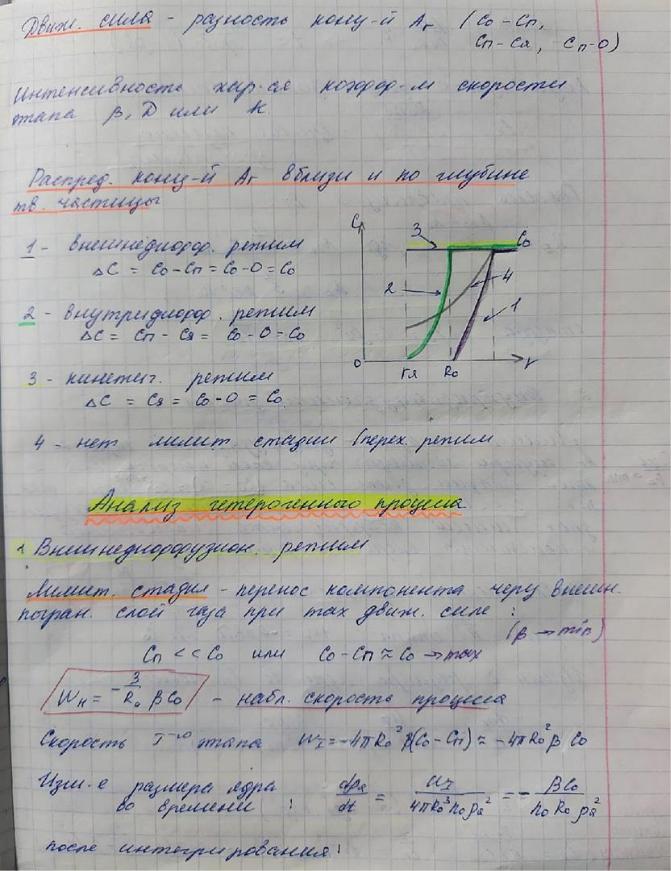 Движ. сила - разность конц-й Аг (Со-Сп,
Сп-Ся, Сп-О)
Интенсивность хар-ся коэфф-м скорости
этапа β, D или К
Распред. конц-й Аг вблизи и по глубине
тв. частицы
1 - внешнедифф. режим
ΔС = Со-Сп = Со-О = Со
2 - внутридифф. режим
ΔС = Сп - Ся = Со-О = Со
3 - кинетич. режим
ΔС = Ся = Со-О = Со
4 - нет лимит стадии (перех. режим
С
3
Со
2
4
1
0
rя
Ro
r
Анализ гетерогенного процесса
1 Внешнедиффузион. режим
Лимит. стадия - перенос компонента через внешн.
погран. слой газа при max движ. силе :
(β → min)
Сп << Со или Со-Сп ≈ Со → max
Wн = - 3/Ro βCo - набл. скорость процесса
Скорость I-го этапа WI = -4πRo² β(Со-Сп) ≈ -4πRo² β Со
Изм-е размера ядра
во времени : dρя/dt = WI/4πRo³ no ρя² = - βCo/no Ro ρя²
после интегрирования: